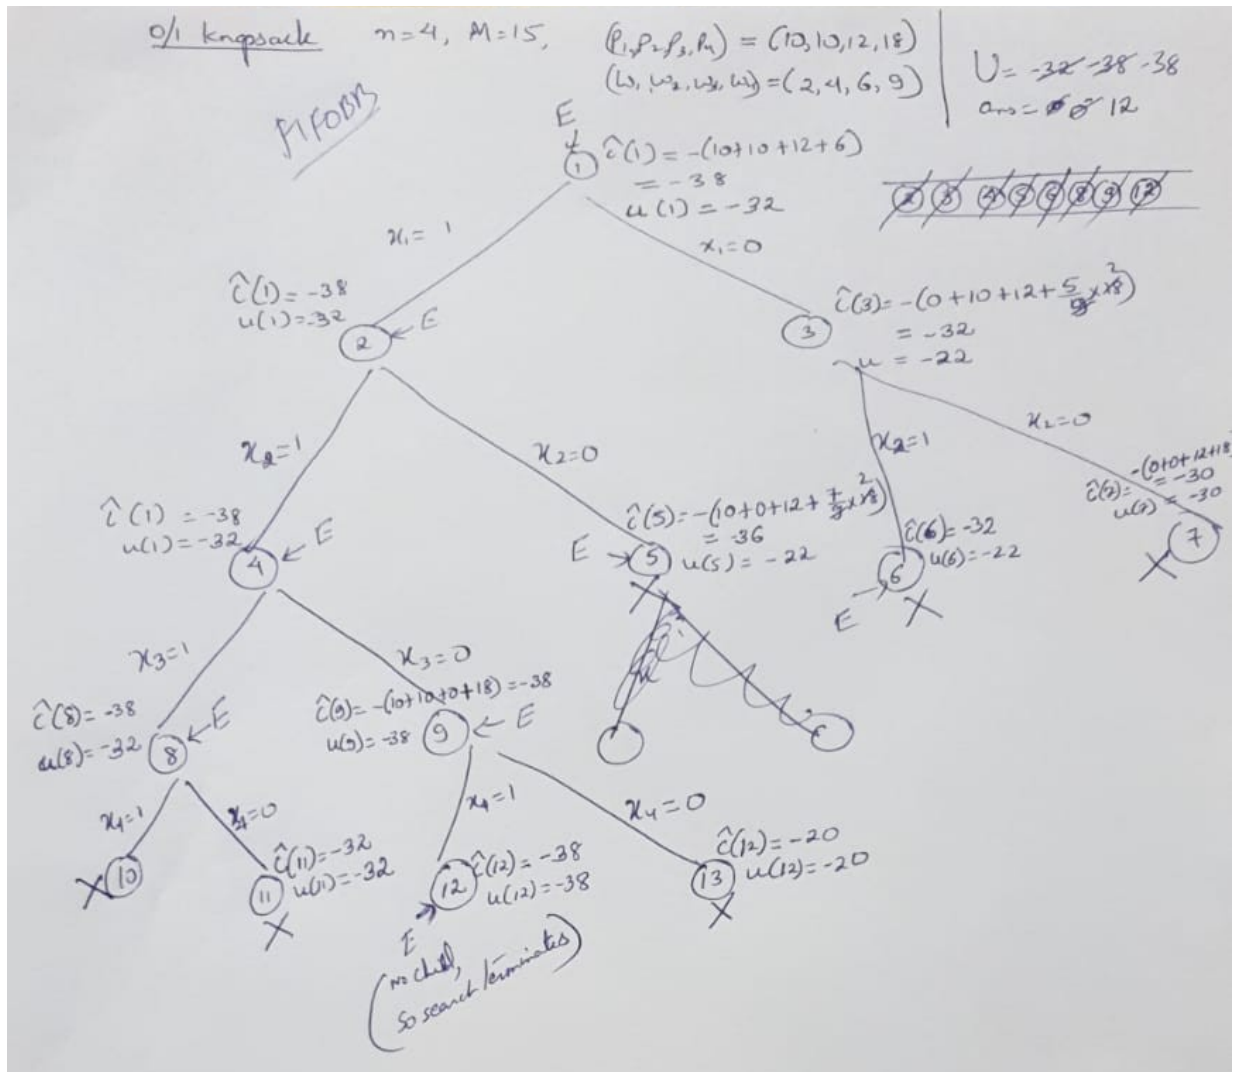 0/1 knapsack n=4, M=15, (P₁,P₂,P₃,P₄) = (10,10,12,18)
(w₁,w₂,w₃,w₄)=(2,4,6,9)
U= -32 -38 -38
ans= 0 12
FIFOBB
E
1
ĉ(1) = -(10+10+12+6)
= -38
u(1) = -32
2 3 4 5 6 8 9 12
x₁= 1
x₁=0
ĉ(1)= -38
u(1)=-32
2
E
3
ĉ(3)= -(0+10+12+5/9×18) 2
= -32
u = -22
x₂=1
x₂=0
x₂=1
x₂=0
ĉ(1) = -38
u(1) = -32
4
E
ĉ(5)= -(10+0+12+7/9×18) 2
= -36
u(5) = -22
E
5
X
ĉ(6)=-32
u(6)=-22
6
E
X
ĉ(7)= -(0+0+12+18)
= -30
u(7) = -30
7
X
x₃=1
x₃=0
ĉ(8)= -38
u(8)= -32
8
E
ĉ(9)= -(10+10+0+18) = -38
u(9)= -38
9
E
x₄=1
x₄=0
x₄=1
x₄=0
X
10
ĉ(11)=-32
u(11)=-32
11
X
12
ĉ(12)= -38
u(12)= -38
E
(no child,
so search terminates)
13
ĉ(12)= -20
u(12)= -20
X